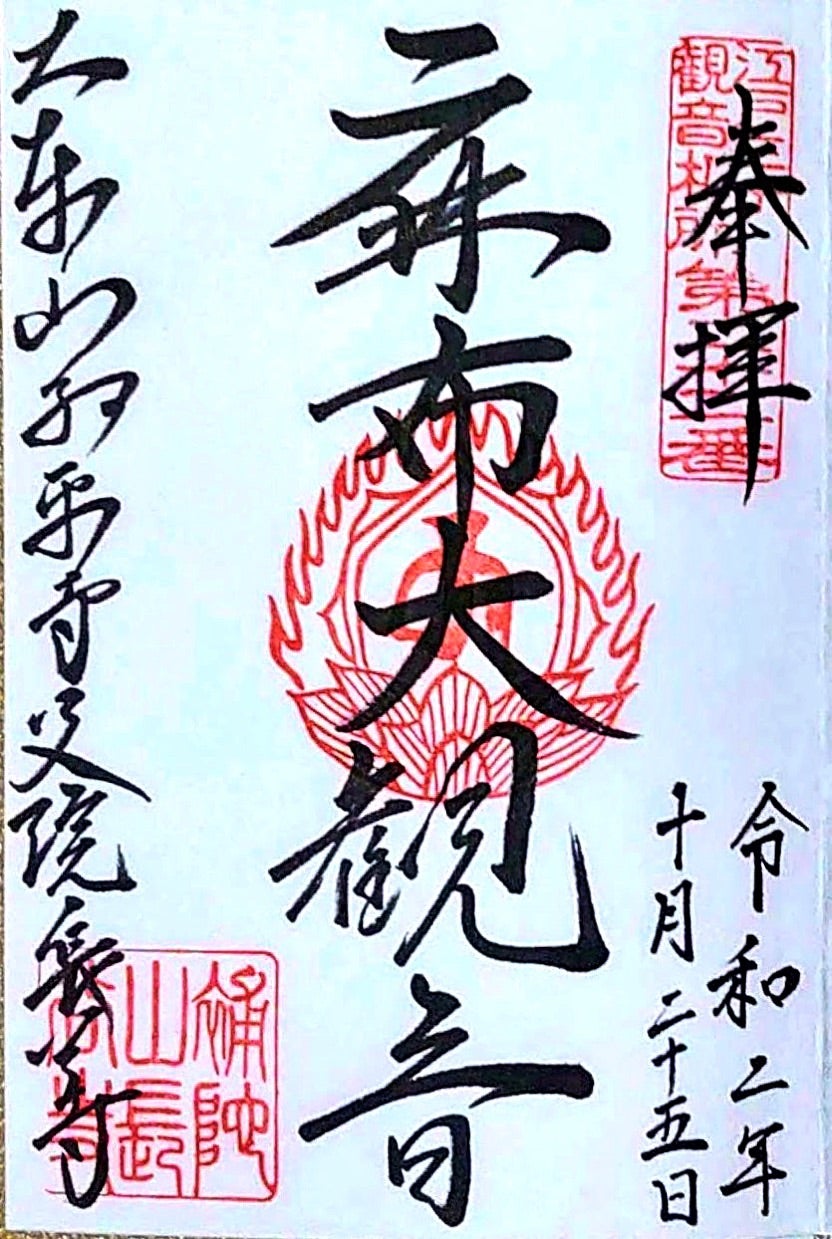 奉拝
江戸
觀音札所第
番
令和二年
十月二十五日
麻布大観音
大本山永平寺別院長谷寺
補陀
山長
谷寺